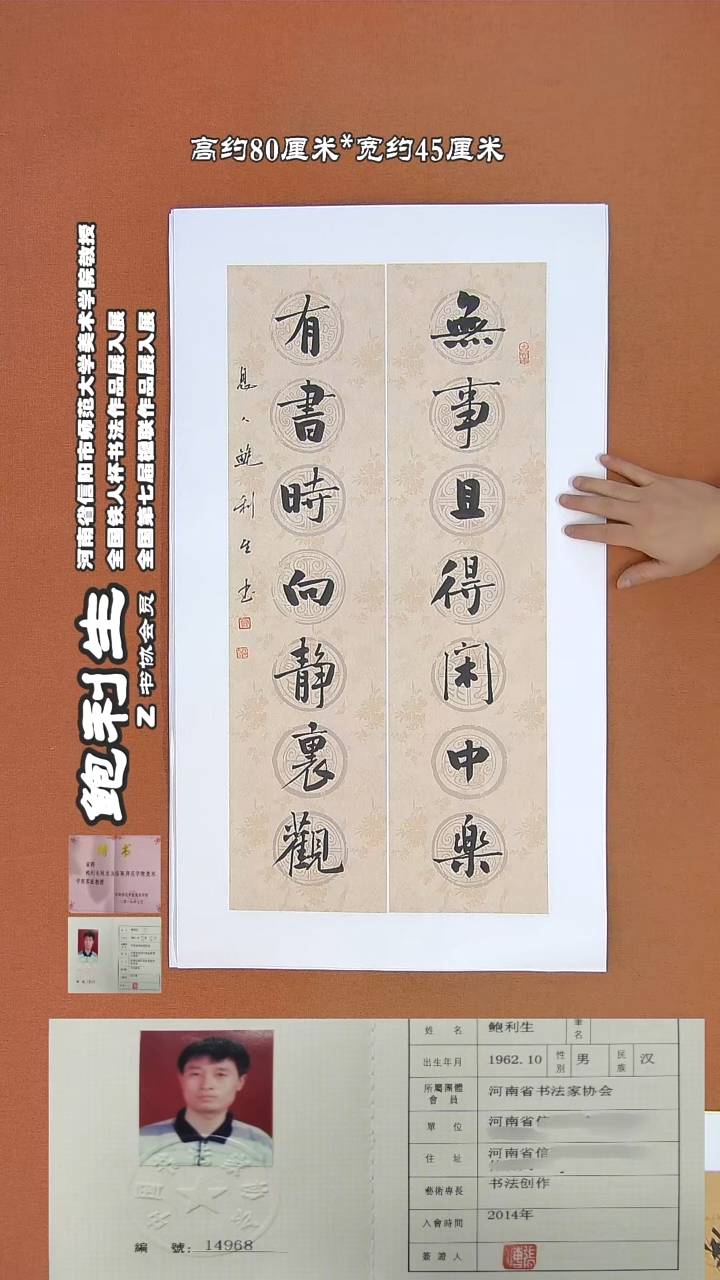 高约80厘米*宽约45厘米
無事且得闲中樂
有書時向静裏觀
息人鲍利生书
河南省信阳市师范大学美术学院教授
全国铁人杯书法作品展入展
全国第七届楹联作品展入展
鲍利生
Z 书协会员
聘书
姓名 鲍利生 筆名
出生年月 1962.10 性別 男 民族 汉
所屬團體會員 河南省书法家协会
單位 河南省信
住址 河南省信
藝術專長 书法创作
入會時間 2014年
簽證人
編號: 14968